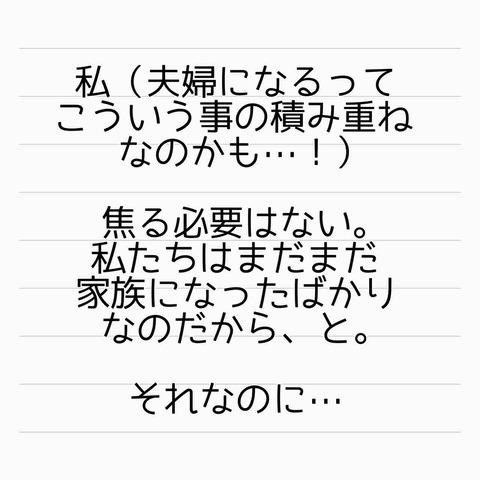 私（夫婦になるって
こういう事の積み重ね
なのかも…！）
焦る必要はない。
私たちはまだまだ
家族になったばかり
なのだから、と。
それなのに…